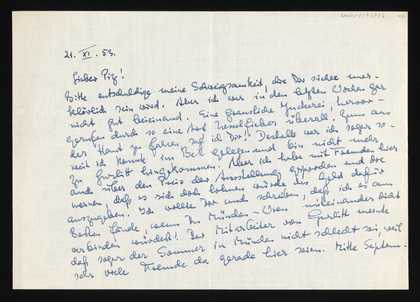 21. XI. 53.
Lieber Pig!
Bitte entschuldige meine Schweigsamkeit, die Dir sicher uner-
klärlich sein wird. Aber ich war in den letzten Wochen gar
nicht gut beieinand. Eine grausliche Muckerei, hervor-
gerufen durch so eine Art überall. Ganz aus
der Haut zu fahren, sag ich Dir! Deshalb war ich sogar so-
weit ich kenne, im Bett gelegen und bin nicht mehr
zu Gurlitt hingekommen. Aber ich habe mit Freunden hier
und über den Preis der Ausstellung gesprochen und die
waren, daß es sich doch lohnen würde das Geld dafür
auszugeben! Ich wollte Dir und schreiben, daß ich es am
besten fände, wenn Ihr München – Wien miteinander dicht
verbinden würdet! Der Mitarbeiter von Gurlitt meinte
daß sogar der Sommer in München nicht schlecht sei, weil
sehr viele Fremde da gerade hier seien. Mitte Septem-